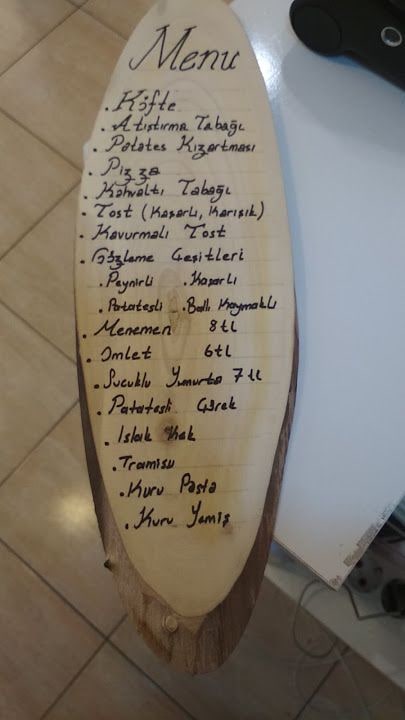 Menu
. Köfte
. Atıştırma Tabağı
. Patates Kızartması
. Pizza
. Kahvaltı Tabağı
. Tost (Kaşarlı, Karışık)
. Kavurmalı Tost
. Gözleme Çeşitleri
. Peynirli . Kaşarlı
. Patatesli . Ballı Kaymaklı
. Menemen 8 tl
. Omlet 6 tl
. Sucuklu Yumurta 7 tl
. Patatesli Çörek
. Islak Kek
. Tramisu
. Kuru Pasta
. Kuru Yemiş